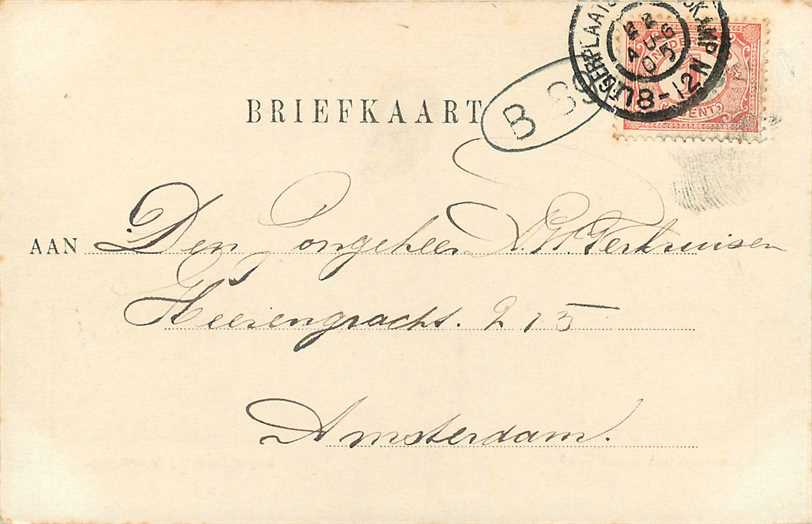 BRIEFKAART
B 89
22
AUG
05
8-12N
CENT
AAN Den Jongeheer Terkruisen
Heerengracht. 215
Amsterdam.